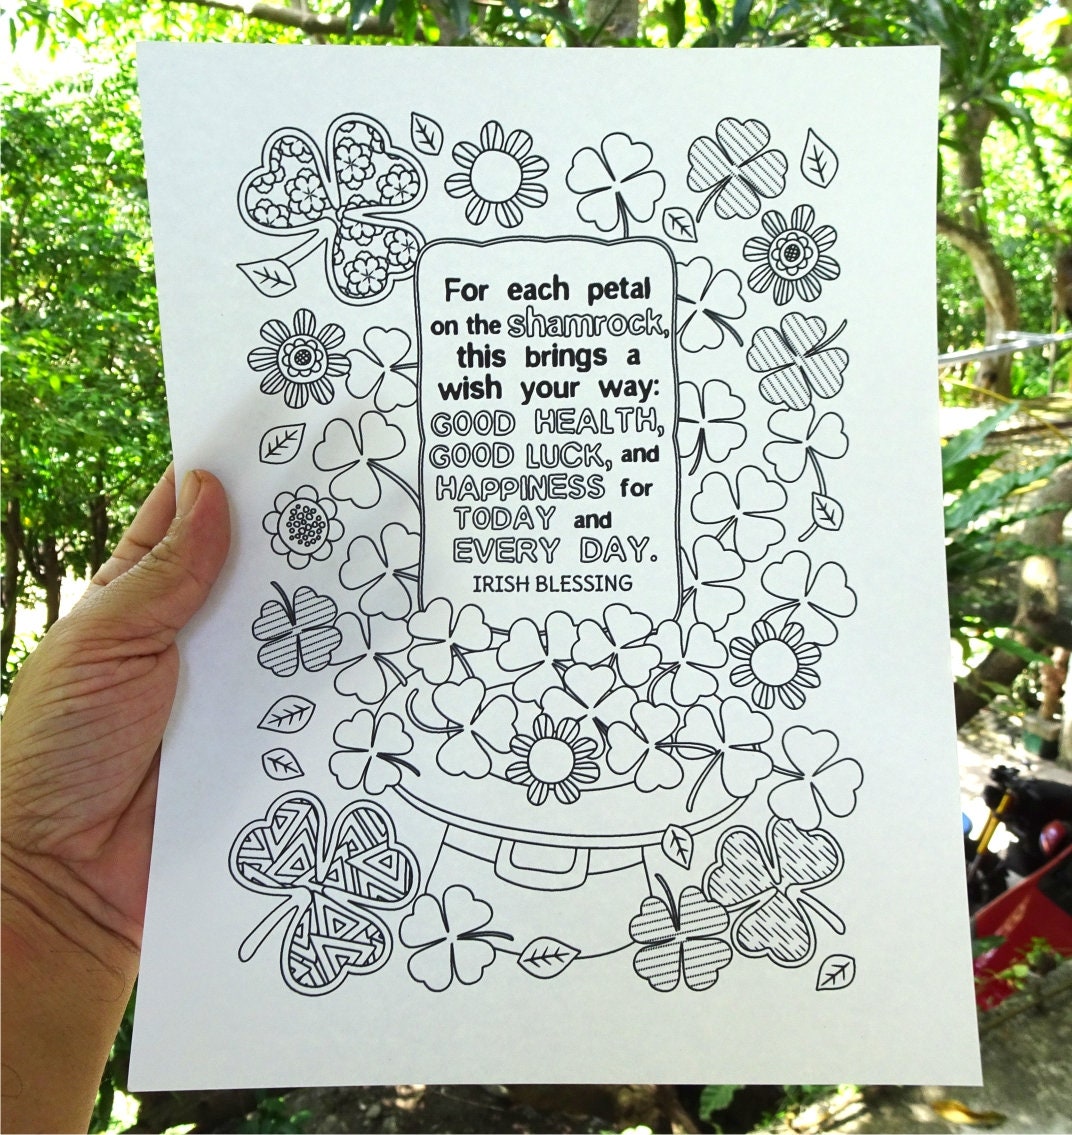 For each petal
on the shamrock,
this brings a
wish your way:
GOOD HEALTH,
GOOD LUCK, and
HAPPINESS for
TODAY and
EVERY DAY.
IRISH BLESSING